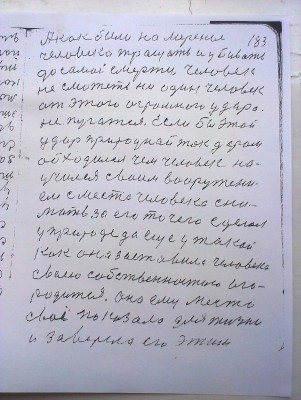 183
А как было намерение
человека тращать и убивать
до самой смерти, человек
не сможет ни один человек
от этого огромного удара
не пугатся. Если бы этой
удар природнай так даром
обходился чем человек на-
учился своим вооружени-
ем с места человека сни-
мать за его то чего сделал
у природе да еще у такой
как она заставила человека
своею собственностию ого-
родится. Она ему место
своё показала для жизни
и заверела его этим